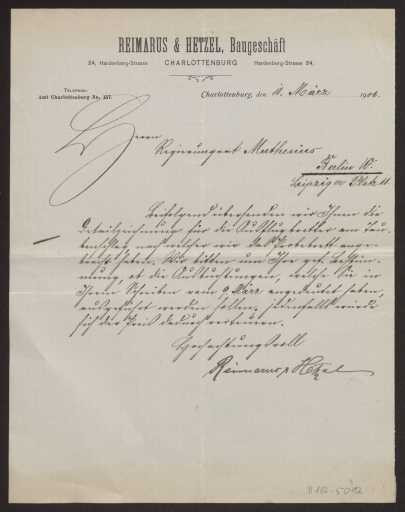 REIMARUS & HETZEL, Baugeschäft
24, Hardenberg-Strasse CHARLOTTENBURG Hardenberg-Strasse 24.
TELEPHON:
Amt Charlottenburg No. 357.
Charlottenburg, den März 1906.
Herrn
Regierungsrat Muthesius
Berlin W.
Leipziger Platz 11
Beifolgend übersenden wir Ihnen die
Detailzeichnung für die
nach welcher wir das
haben. Wir bitten um Ihre gefl. Bestim-
mung, ob die welche Sie in
Ihrem Schreiben vom 9. März angedeutet haben,
ausgeführt werden sollen, jedenfalls würde
sich der Preis dadurch verteuern.
Hochachtungsvoll
Reimarus & Hetzel